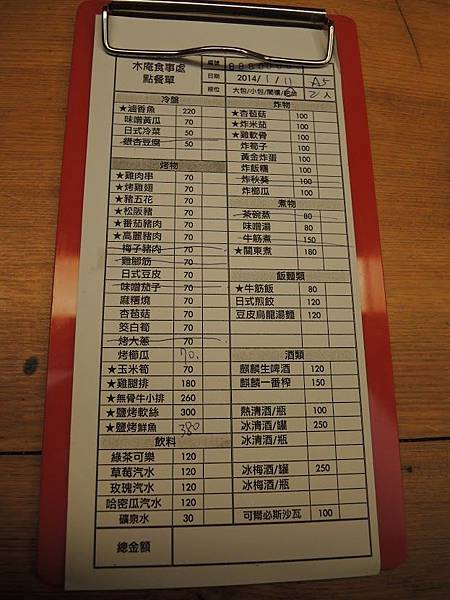 木庵食事處
點餐單
編號
日期 2014/1/11 A5
座位 大包/小包/閣樓/吧台 2人
冷盤
★滷香魚 220
味噌黃瓜 70
日式冷菜 50
銀杏豆腐 50
烤物
★雞肉串 70
★烤雞翅 70
★豬五花 70
★松阪豬 70
★番茄豬肉 70
★高麗豬肉 70
梅子豬肉 70
雞腳筋 70
日式豆皮 70
味噌茄子 70
麻糬燒 70
杏苞菇 70
筊白筍 70
烤大蔥 70
烤櫛瓜 70.
★玉米筍 70
★雞腿排 180
★無骨牛小排 260
★鹽烤軟絲 300
★鹽烤鮮魚 380
飲料
綠茶可樂 120
草莓汽水 120
玫瑰汽水 120
哈密瓜汽水 120
礦泉水 30
總金額
炸物
★杏苞菇 100
★炸米茄 100
★雞軟骨 100
炸筍子 100
黃金炸蛋 100
炸飯糰 100
炸秋葵 100
炸櫛瓜 100
煮物
茶碗蒸 80
味噌湯 80
牛筋煮 150
★關東煮 180
飯麵類
★牛筋飯 80
日式煎餃 120
豆皮烏龍湯麵 120
酒類
麒麟生啤酒 120
麒麟一番榨 150
熱清酒/瓶 100
冰清酒/罐 250
冰清酒/瓶
冰梅酒/罐 250
冰梅酒/瓶
可爾必斯沙瓦 100